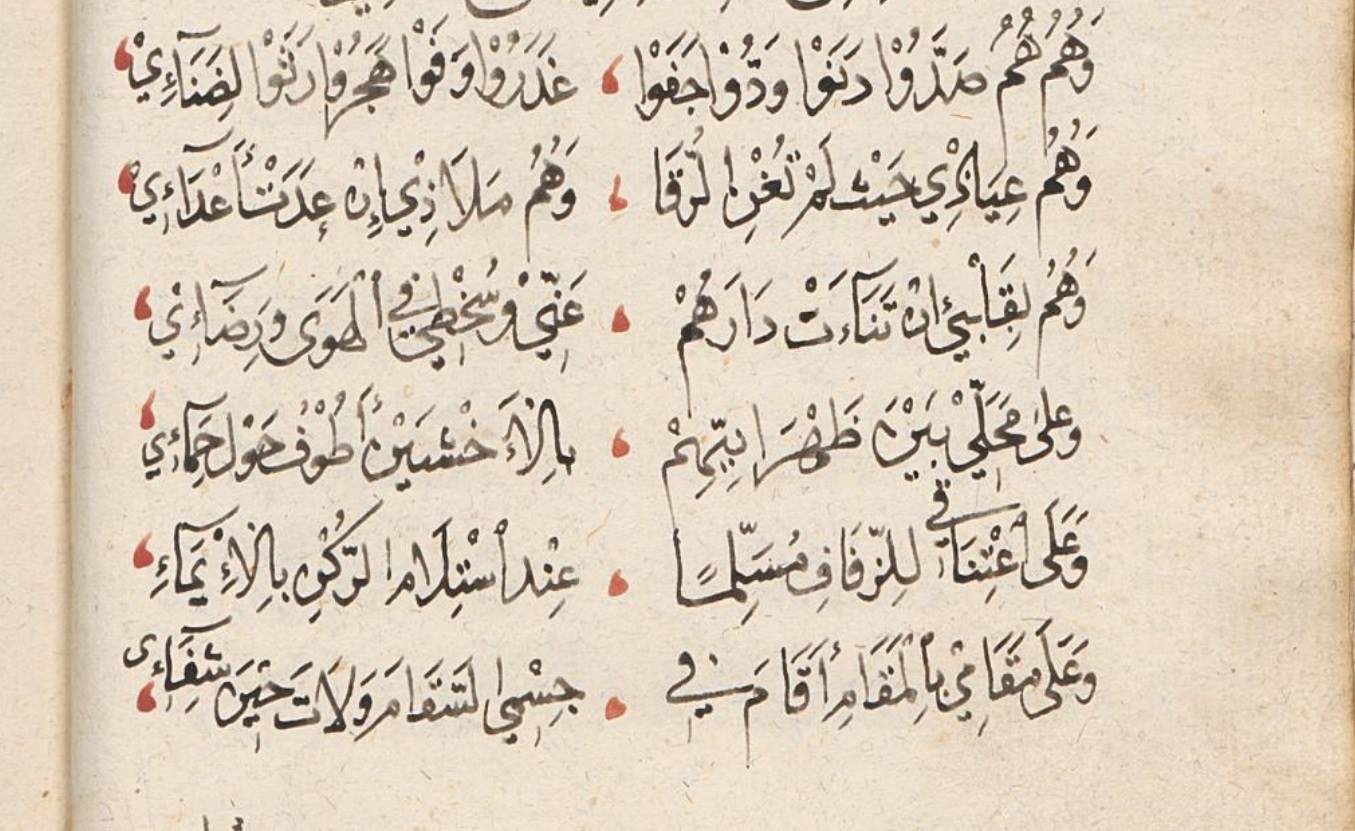 وَهُمُ هُمُ صَدُّوْا دَنَوْا وَدُّوْا جَفَوْا ، غَدَرُوْا وَفَوْا هَجَرُوْا رَثَوْا لِضَنَآءِيْ
وَهُمُ عِيَاذِيْ حَيْث لَمْ تُغْنِ الرُّقَا ، وَهُمُ مَلَاذِيْ اِنْ عِدَتْ أَعْدَآءِيْ
وَهُمُ بِقَلْبِيْ اِنْ تَنَآءَتْ دَارَهُمْ ، عَنِّيْ وَسُخْطِيْ فِي الْهَوَى وَرِضَآءِيْ
وَعَلى مَحَلِّيْ بَيْنَ ظَهْرَانِيِّهِمْ ، بِالْاَخْشَبَيْنِ أَطُوْفُ حَوْلَ حِمَآءِيْ
وَعَلَى اعْتِنَاقِي لِلرِّفَاقِ مُسَلِّمًا ، عِنْدَ اسْتِلَامِ الرُّكْنِ بِالْاِيْمَآءِ
وَعَلَى مَقَامِيْ بِالْمَقَامِ أَقَامَ فِي ، جِسْمِي السَّقَامُ وَلَاتَ حِيْنَ شِفَآءِى